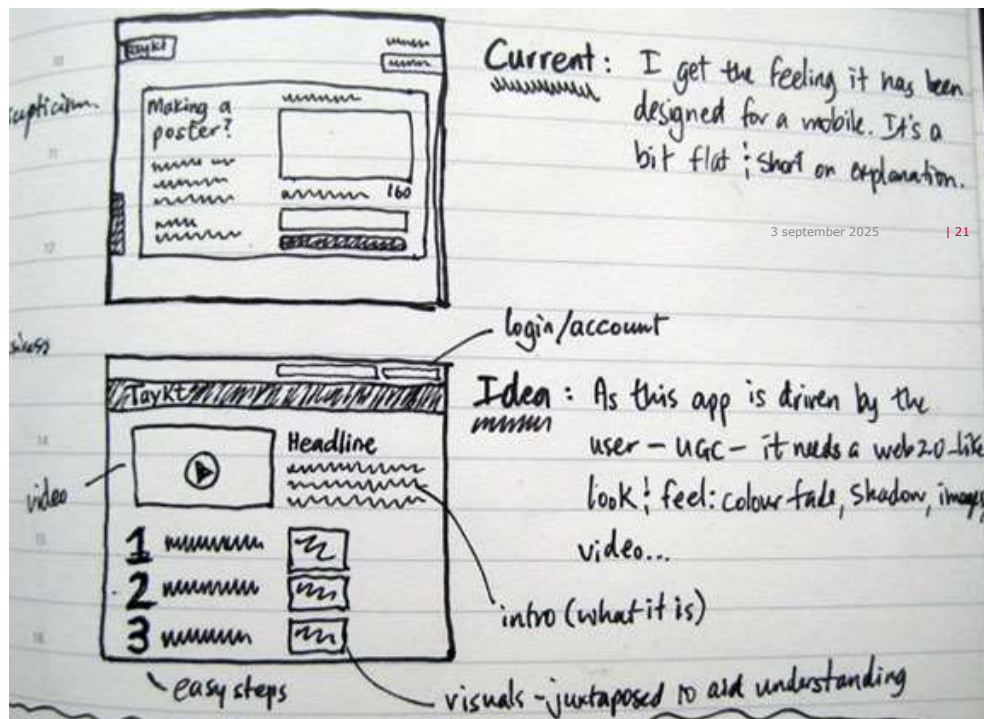 Taykt
Making a
poster?
160
Current: I get the feeling it has been
designed for a mobile. It's a
bit flat & short on explanation.
3 september 2025 | 21
login/account
Taykt
Headline
video
1
2
3
easy steps
Idea: As this app is driven by the
user - UGC - it needs a web 2.0-like
look & feel: colour fade, shadow, images,
video...
intro (what it is)
visuals - juxtaposed to aid understanding